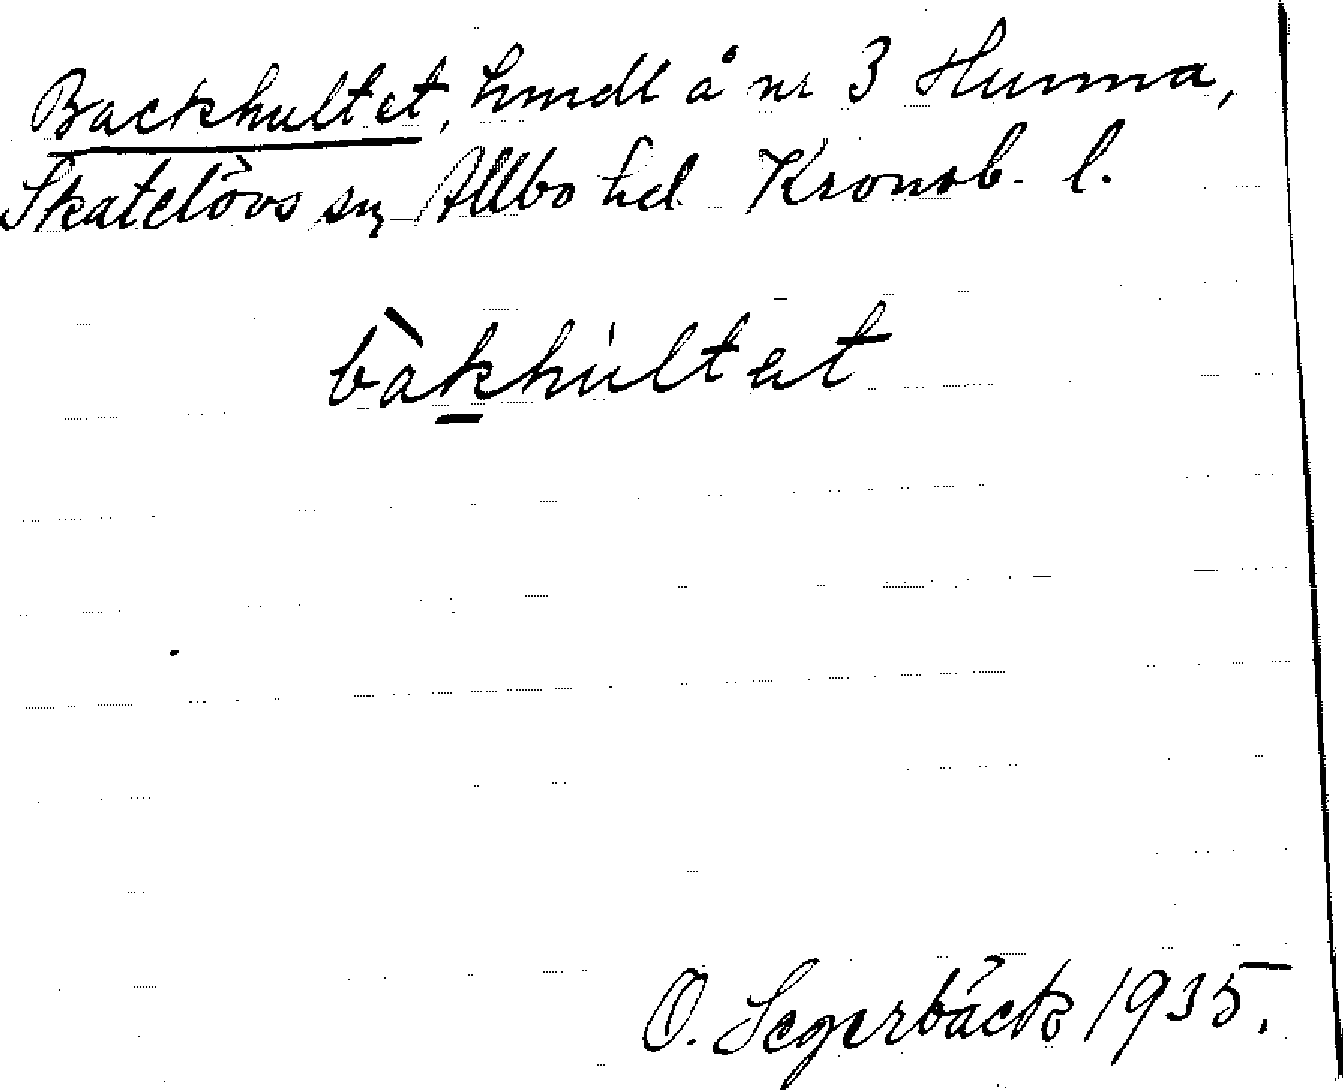 Backhultet, hmdl å nr 3 Hunna,
Skatelövs sn, Allbo hd Kronob. l.
bàkhúltət
O. Segerbäck 1935.